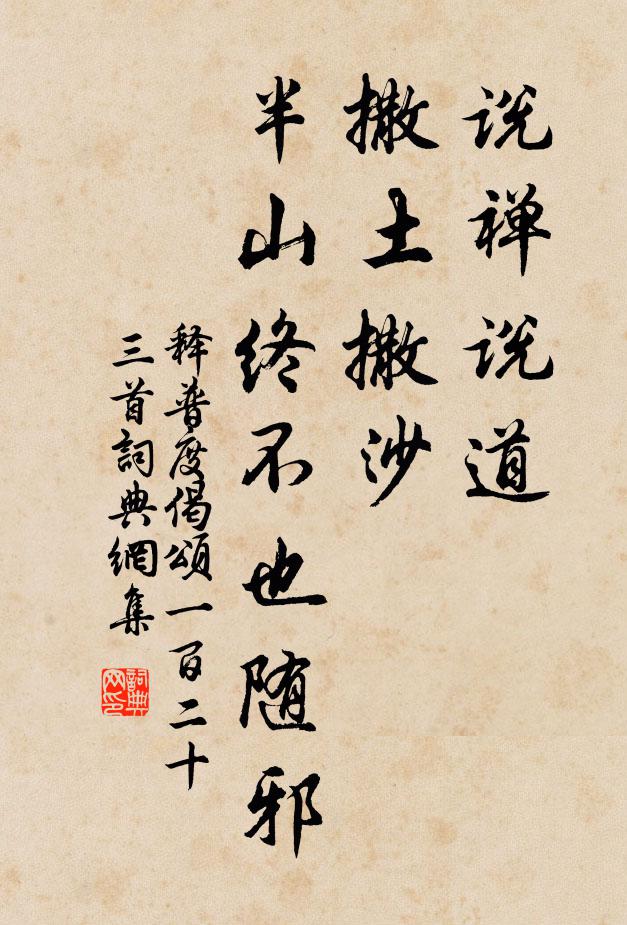 说禅说道
撒土撒沙
半山终不也随邪
释普度偈颂一百二十
三首詞典網集
詞典
网印